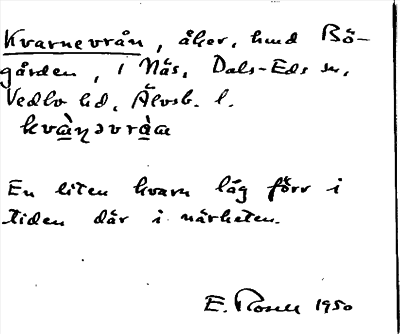 Kvarnevrån, åker, hmd Bö-
gården, i Näs, Dals-Eds sn,
Vedbo hd, Älvsb. l.
En liten kvarn låg förr i
tiden där i närheten.
E. Rosell 1950